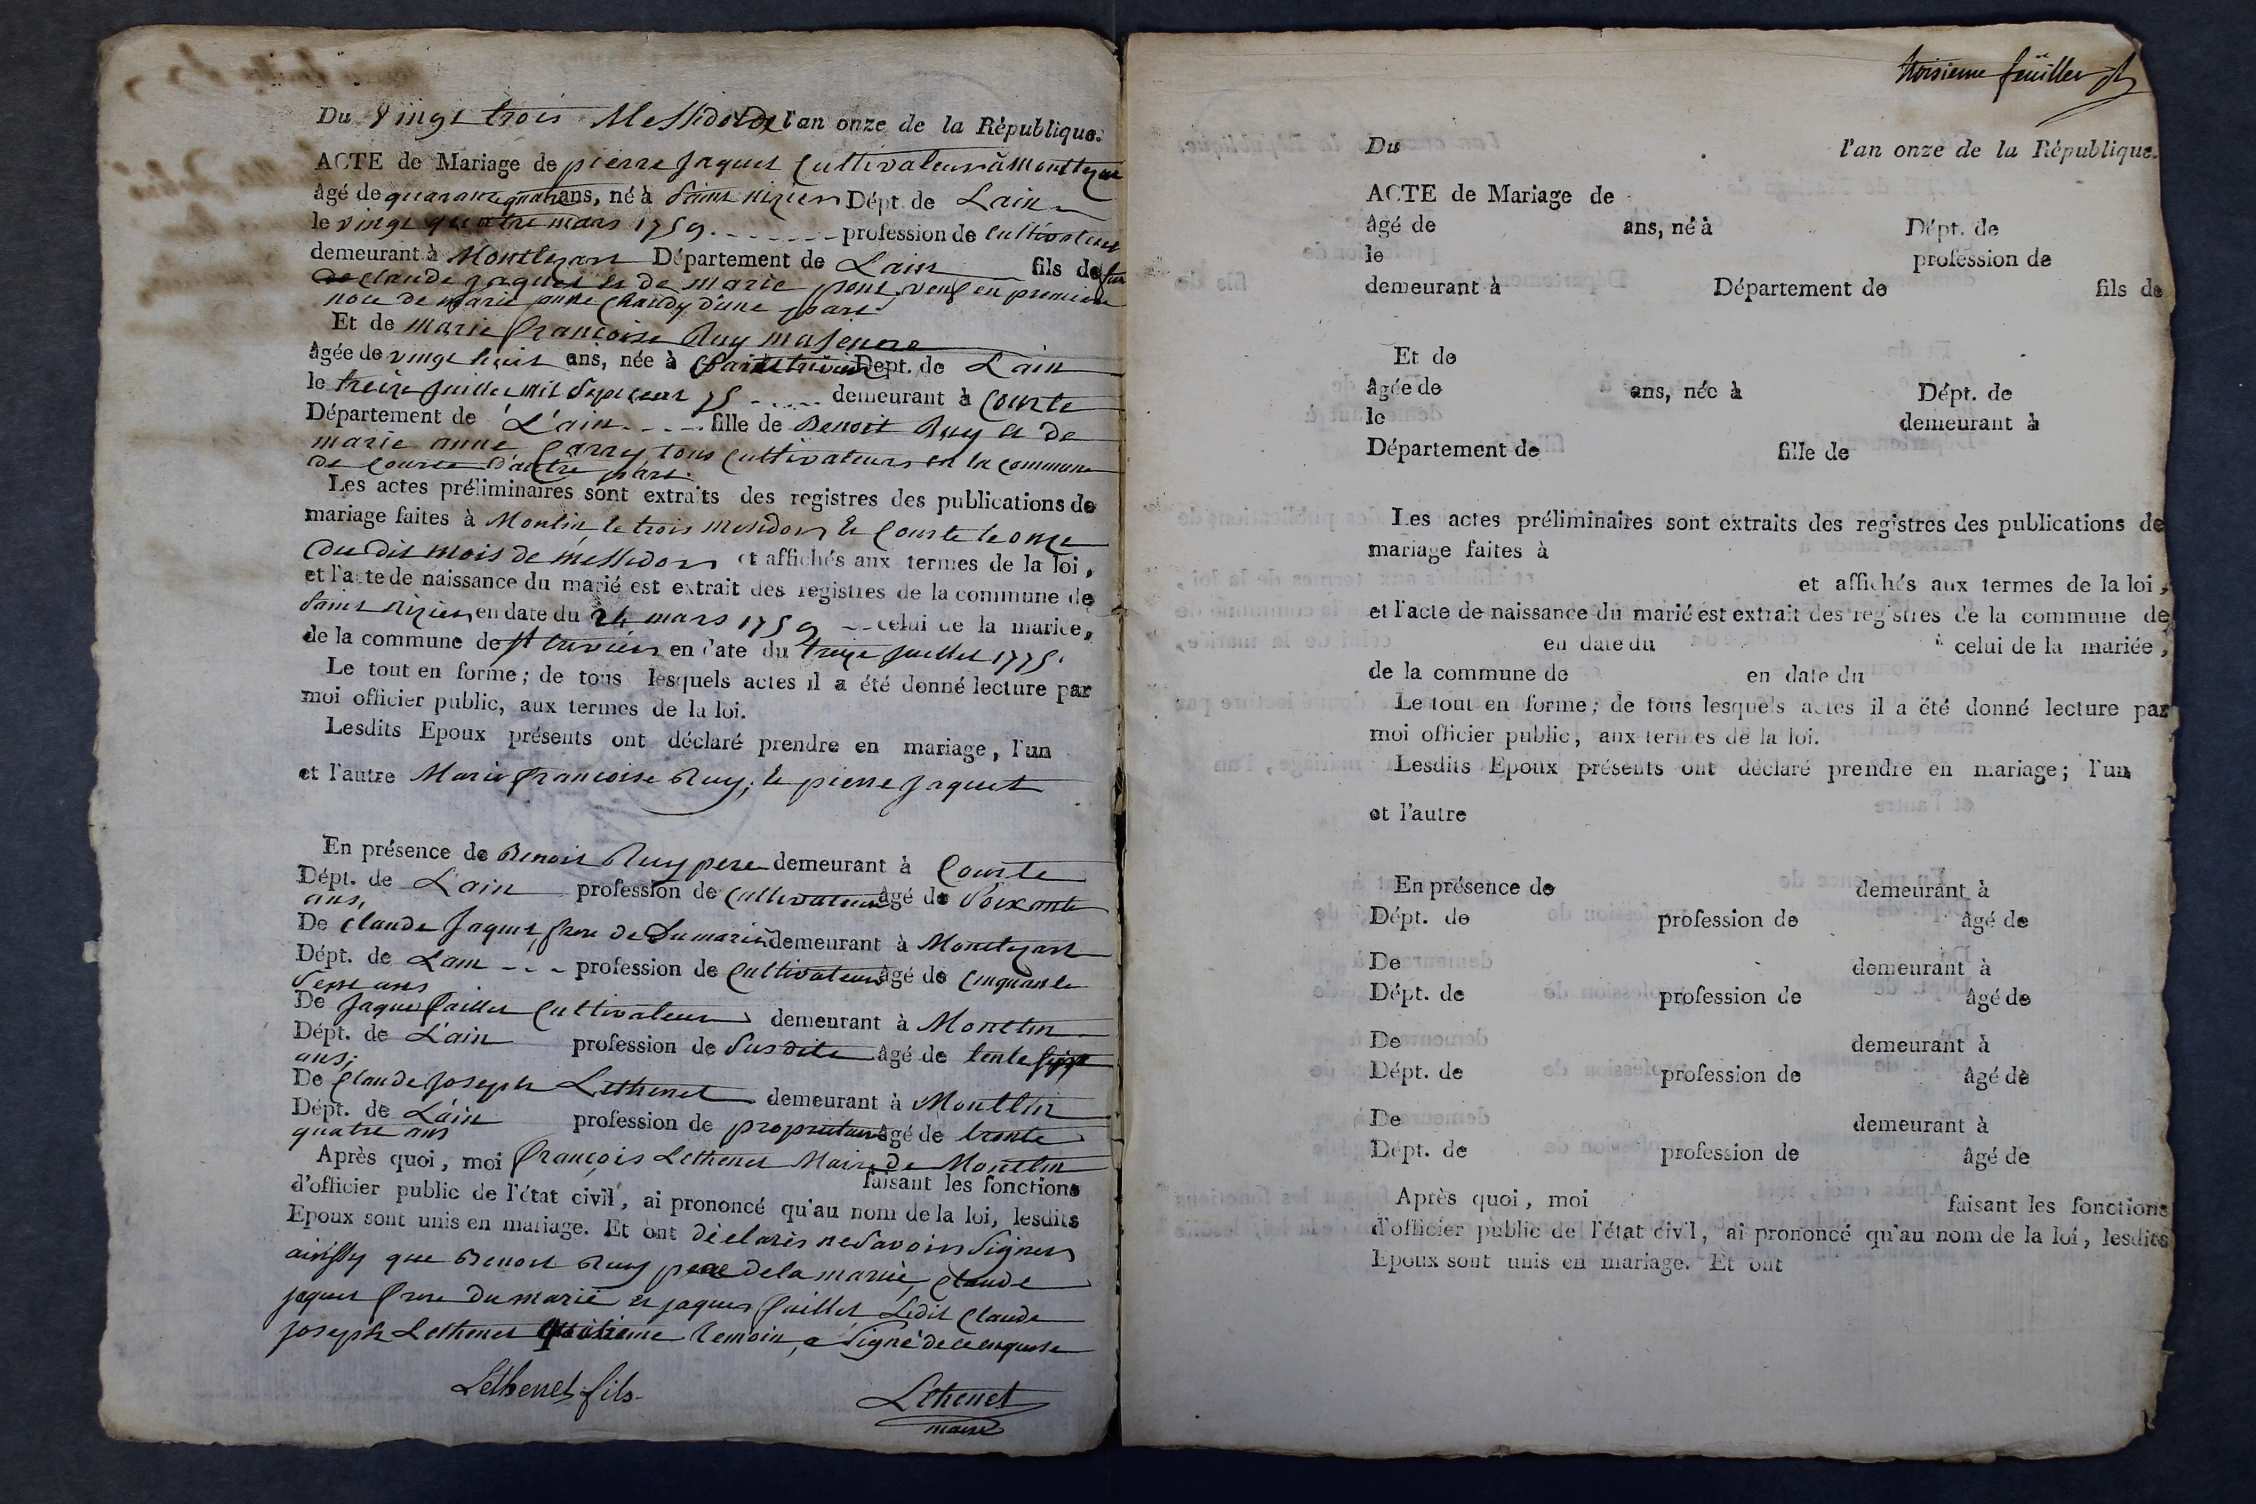 Du Vingt trois Messidor de l'an onze de la République.
ACTE de Mariage de pierre Jaquet Cultivateur à Montlezar
âgé de quarante quatre ans, né à Saint Nizier Dépt. de Lain
le vingt quatre mars 1759. - - - - - - profession de Cultivateur
demeurant à Montlezart Département de Lain fils de feu
de Claude Jaquet et de marie pont, veuf en premiere
noce de marie anne Chaudy d'une part.
Et de marie françoise Ruy majeure
âgée de vingt huit ans, née à Saint trivier Dépt. de Lain
le treize Juillet Mil Sept cent 75 - - - - - demeurant à Courte
Département de L'ain - - - - fille de Benoit Ruy et de
marie anne Carry tous Cultivateurs en la commune
de Courte d'autre part.
Les actes préliminaires sont extraits des registres des publications de
mariage faites à Montlin le trois messidor & Courte le onze
du dit mois de messidor et affichés aux termes de la loi,
et l'acte de naissance du marié est extrait des registres de la commune de
Saint Nizier en date du 24 mars 1759 - - celui de la mariée,
de la commune de St trivier en date du treize Juillet 1775.
Le tout en forme; de tous lesquels actes il a été donné lecture par
moi officier public, aux termes de la loi.
Lesdits Epoux présents ont déclaré prendre en mariage, l'un
et l'autre Marie françoise Ruy, & pierre Jaquet
En présence de Benoit Ruy pere demeurant à Courte
Dépt. de L'ain profession de Cultivateur âgé de Soixante
ans,
De Claude Jaquet frere de Du marié demeurant à Montlezart
Dépt. de Lain - - - profession de Cultivateur âgé de Cinquante
Sept ans
De Jaques Caillet Cultivateur demeurant à Montlin
Dépt. de L'ain profession de Susdite âgé de tente Sept
ans;
De Claude Joseph Lethenet demeurant à Montlin
Dépt. de L'ain profession de propriétaire âgé de trente
quatre ans
Après quoi, moi François Lethenet Maire de Montlin
faisant les fonctions
d'officier public de l'état civil, ai prononcé qu'au nom de la loi, lesdits
Epoux sont unis en mariage. Et ont déclarés ne Savoir Signer
ainssy que Benoit Ruy pere de la marié, Claude
jaquet frere du marié et jaques Caillet, Ledit Claude
Joseph Lethenet temoin, a Signé de ce enquis
Lethenet fils
Lethenet
maire
troisieme feuillet
Du l'an onze de la République.
ACTE de Mariage de
âgé de ans, né à Dépt. de
le profession de
demeurant à Département de fils de
Et de
âgée de ans, née à Dépt. de
le demeurant à
Département de fille de
Les actes préliminaires sont extraits des registres des publications de
mariage faites à
et affichés aux termes de la loi,
et l'acte de naissance du marié est extrait des registres de la commune de
en date du celui de la mariée,
de la commune de en date du
Le tout en forme; de tous lesquels actes il a été donné lecture par
moi officier public, aux termes de la loi.
Lesdits Epoux présents ont déclaré prendre en mariage; l'un
et l'autre
En présence de demeurant à
Dépt. de profession de âgé de
De demeurant à
Dépt. de profession de âgé de
De demeurant à
Dépt. de profession de âgé de
De demeurant à
Dépt. de profession de âgé de
Après quoi, moi faisant les fonctions
d'officier public de l'état civil, ai prononcé qu'au nom de la loi, lesdits
Epoux sont unis en mariage. Et ont